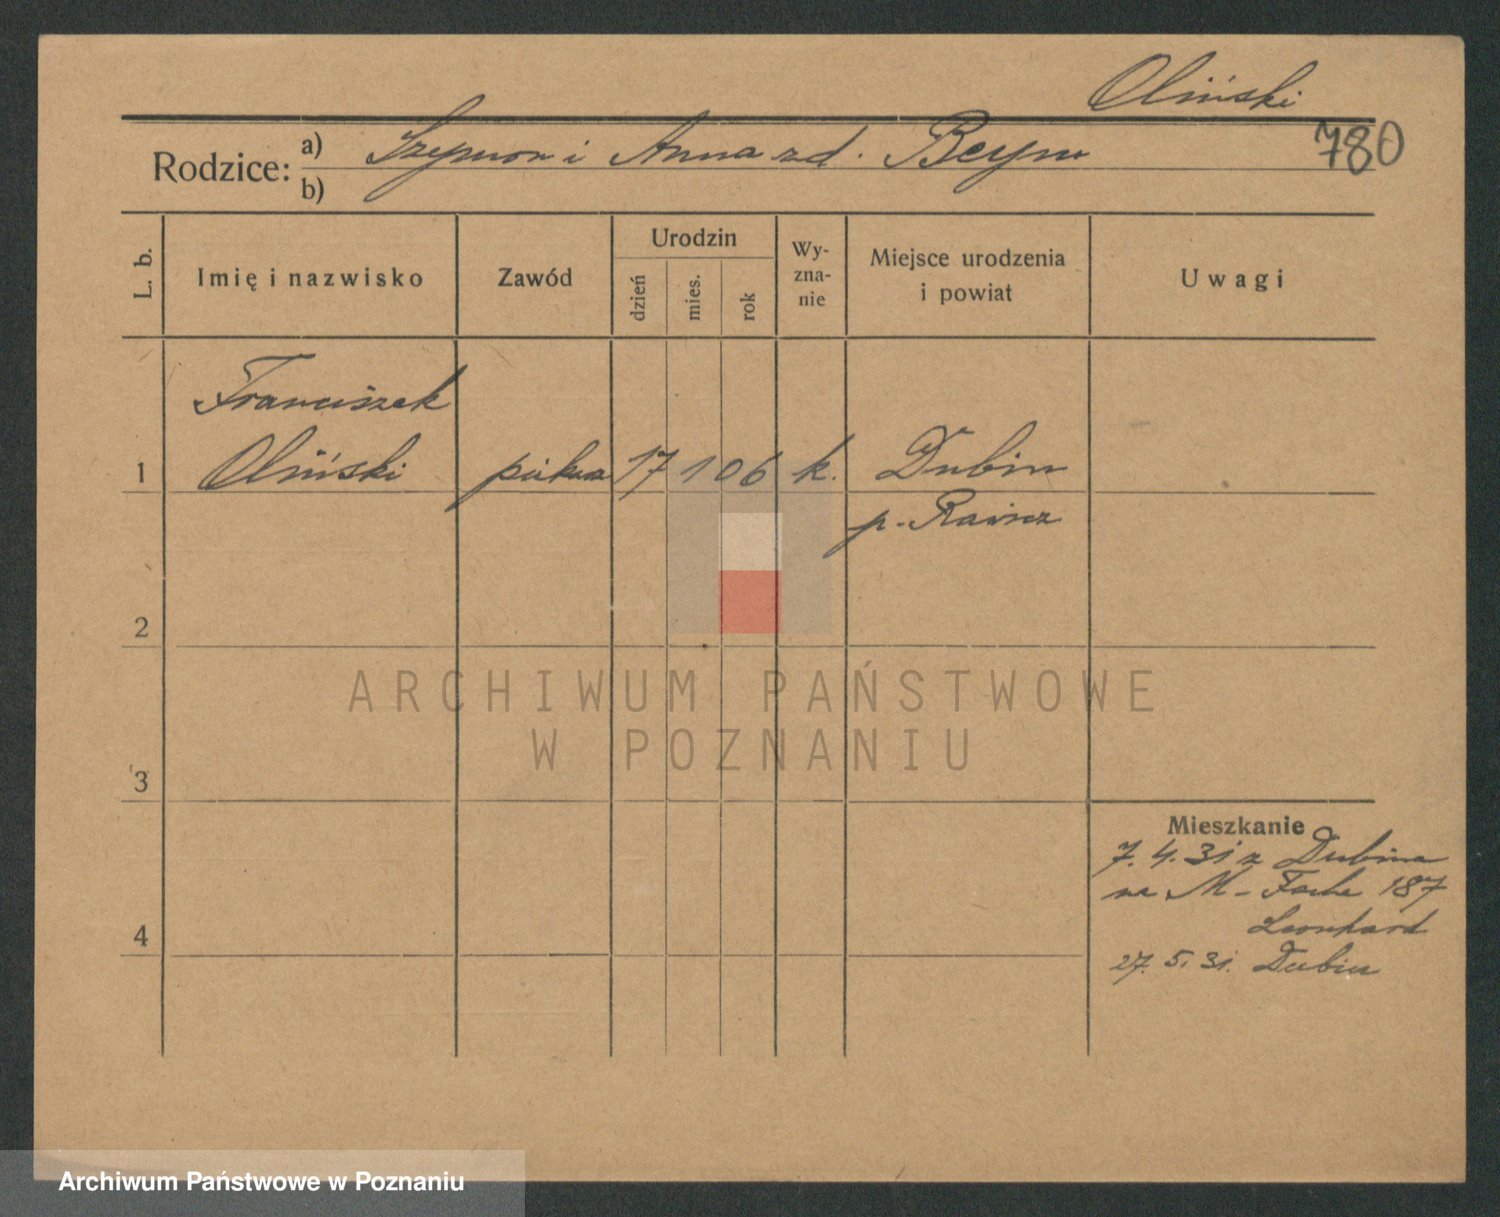 Oliński
780
Rodzice: a) Szymon i Anna zd. Beym
b)
L. b.
Imię i nazwisko
Zawód
Urodzin
dzień
mies.
rok
Wy-
zna-
nie
Miejsce urodzenia
i powiat
Uwagi
Franciszek
1 Oliński piekarz 17 1 06 k. Dubin
p. Rawicz
2
3
4
Mieszkanie
7. 4. 31 z Dubina
na M- Focha 187
Leonhard
27. 5. 31. Dubin
ARCHIWUM PAŃSTWOWE
W POZNANIU
Archiwum Państwowe w Poznaniu